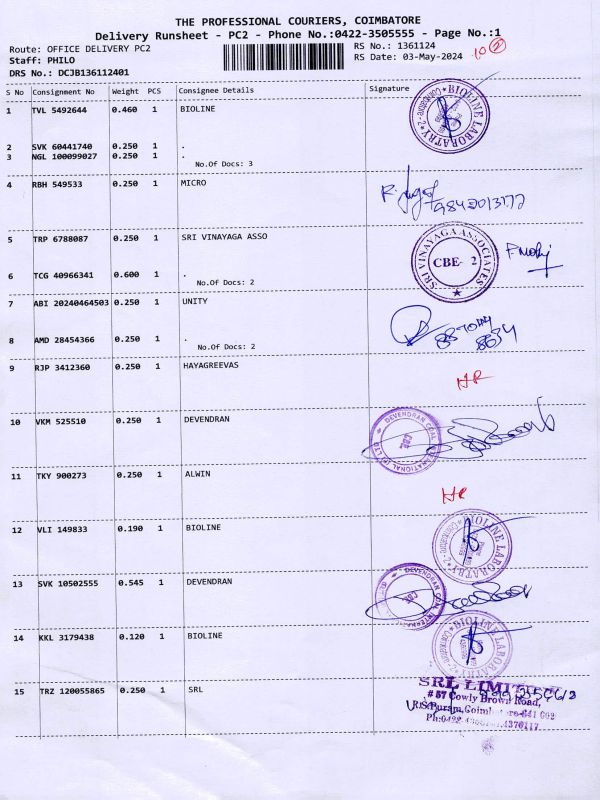 THE PROFESSIONAL COURIERS, COIMBATORE
Delivery Runsheet - PC2 - Phone No.:0422-3505555 - Page No.:1
Route: OFFICE DELIVERY PC2
RS No.: 1361124
10 2
Staff: PHILO
RS Date: 03-May-2024
DRS No.: DCJB136112401
S No Consignment No Weight PCS Consignee Details Signature
1 TVL 5492644 0.460 1 BIOLINE
BIOLINE LABORATRY
2 SVK 60441740 0.250 1 .
3 NGL 100099027 0.250 1 .
No.Of Docs: 3
4 RBH 549533 0.250 1 MICRO
5 TRP 6788087 0.250 1 SRI VINAYAGA ASSO
SRI VINAYAGA ASSOCIATES
CBE- 2
6 TCG 40966341 0.600 1 .
No.Of Docs: 2
7 ABI 20240464503 0.250 1 UNITY
8 AMD 28454366 0.250 1 .
No.Of Docs: 2
9 RJP 3412360 0.250 1 HAYAGREEVAS
10 VKM 525510 0.250 1 DEVENDRAN
DEVENDRAN COAL INTERNATIONAL (P) LTD
CBE.
11 TKY 900273 0.250 1 ALWIN
12 VLI 149833 0.190 1 BIOLINE
BIOLINE LABORATRY
13 SVK 10502555 0.545 1 DEVENDRAN
DEVENDRAN COAL
CBE.
14 KKL 3179438 0.120 1 BIOLINE
BIOLINE LABORATRY
15 TRZ 120055865 0.250 1 SRL
SRL LIMITED
# 57 Cowly Brown Road,
R.S.Puram, Coimbatore-641 002